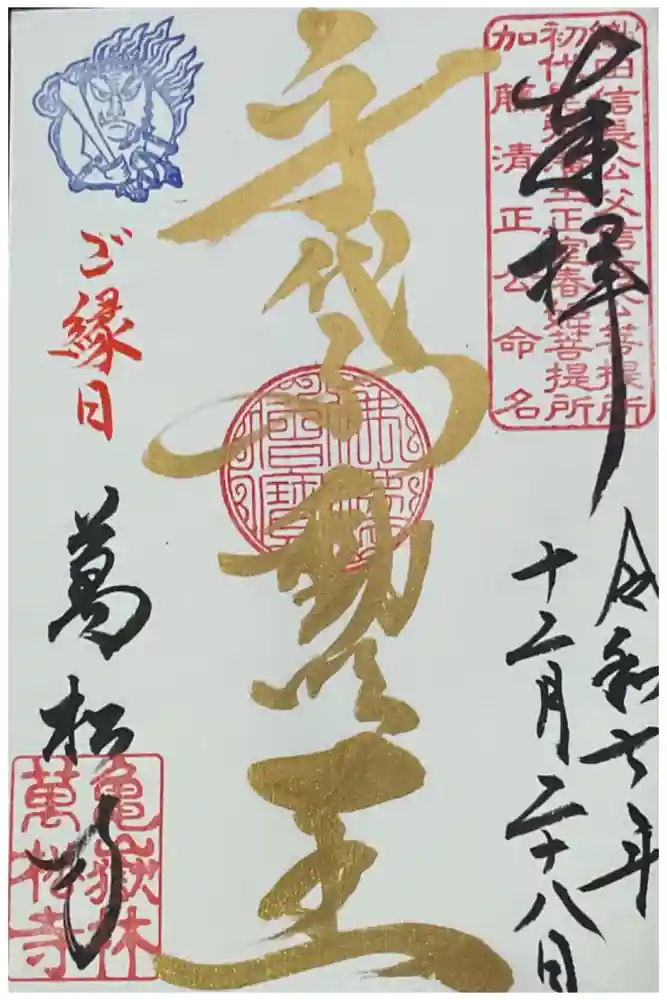 奉拝
織田信長公父信秀公菩提所
初代尾張藩主正室春姫菩提所
加藤清正公命名
令和六年
十二月二十八日
身代不動明王
ご縁日
萬松寺
亀嶽林
萬松寺